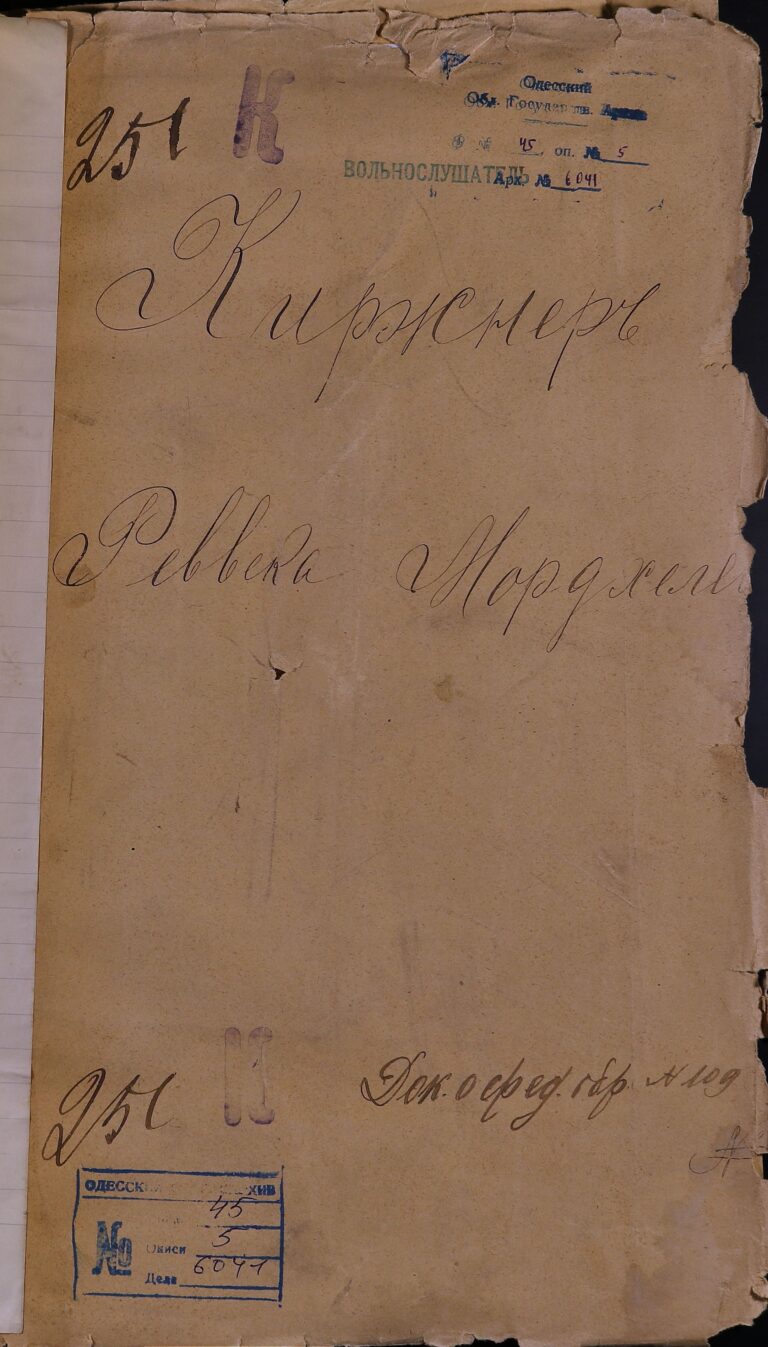 251 К
Одесский
Обл. Государств. Архив
Ф № 45 оп. № 5
ВОЛЬНОСЛУШАТЕЛЬ
Арх. № 6041
Киржнеръ
Реввека Мордхеле
251 К
Док. о сред. обр. № 109
ОДЕССК ХИВ
45
№ Описи 5
Дела 6041